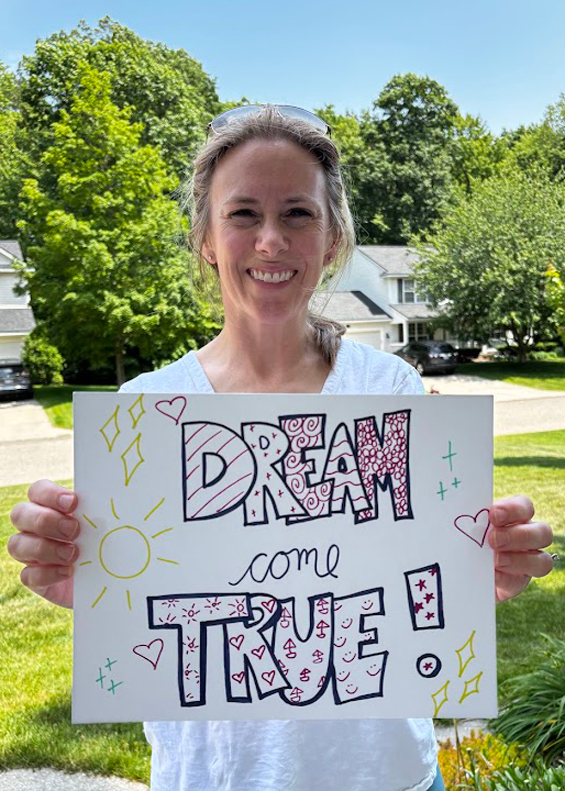 DREAM
come
TRUE!